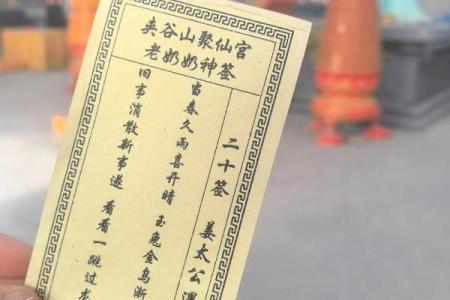 夹谷山聚仙宫
老奶奶神签
二十签 姜太公
当春久雨喜开晴 玉兔金乌渐
旧事消散新事遂 看看一跳过